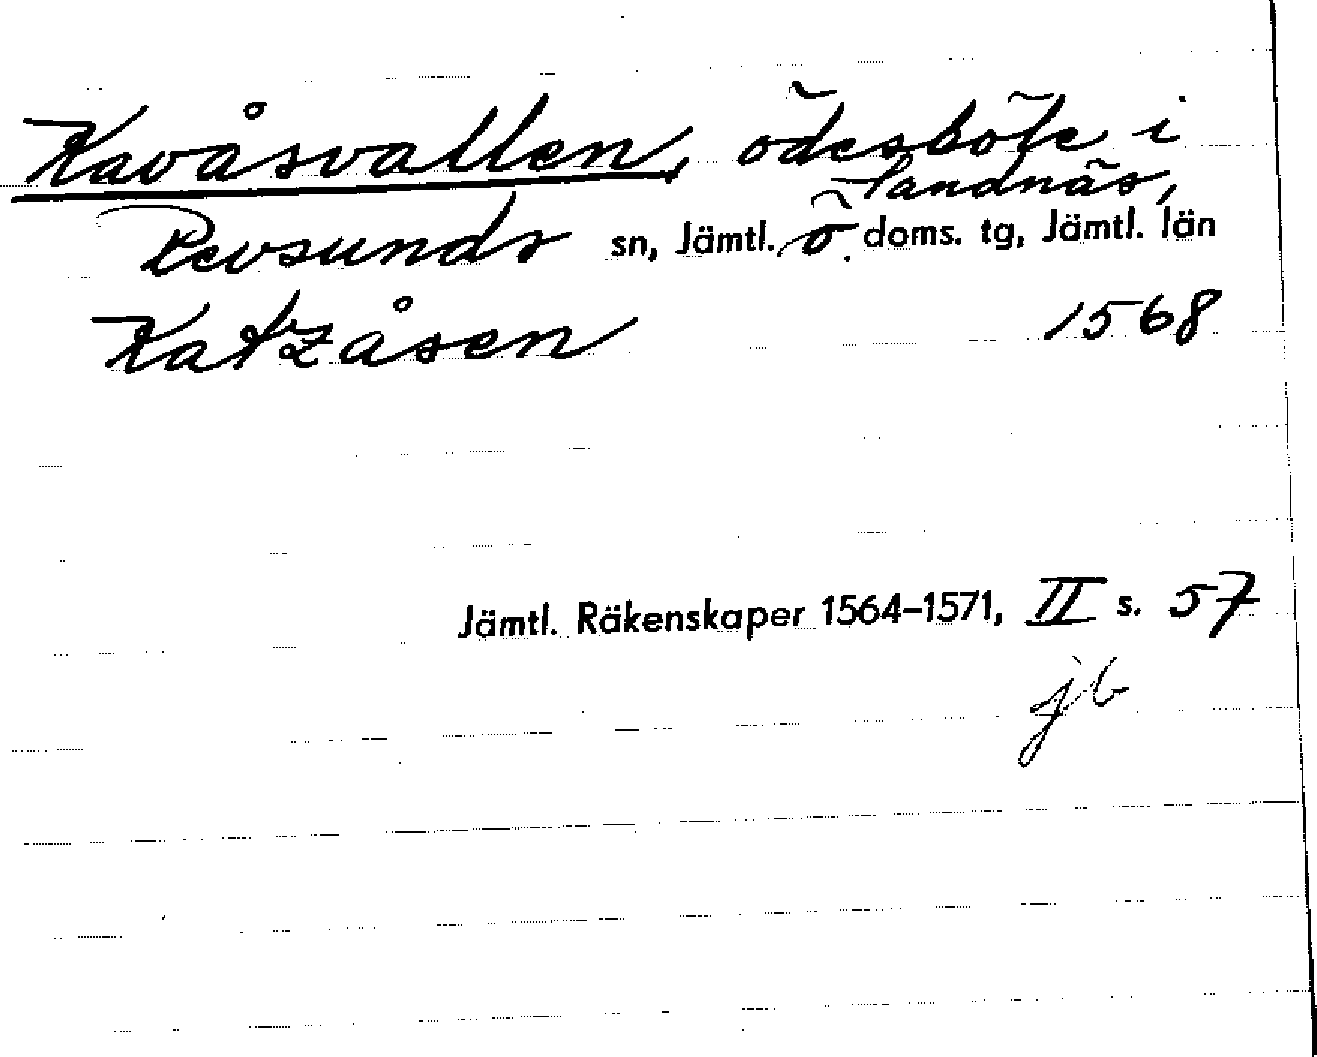 Kavåsvallen, ödesböle i
Sandnäs,
Revsunds sn, Jämtl. ö. doms. tg, Jämtl. län
Katzåsen 1568
Jämtl. Räkenskaper 1564–1571, II s. 57
jb